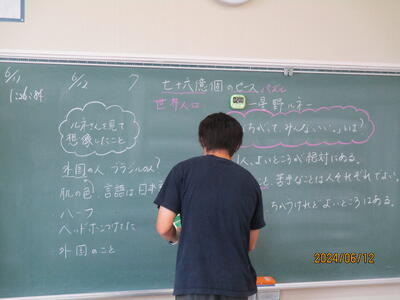 6/11
1:26:84
6/12
7
七十六億個のピース パズル
世界人口
星野ルネー
ルネさんを見て
想像したこと
ちがって、みんないい。」とは?
外国の人 ブラジルの人?
人、よいところが絶対にある。
肌の色 言語は日本
と、苦手なことは人それぞれでよい。
ハーフ
ちがうけれどよいところはある。
ヘッドホンつけてた
外国のこと
2024/06/12